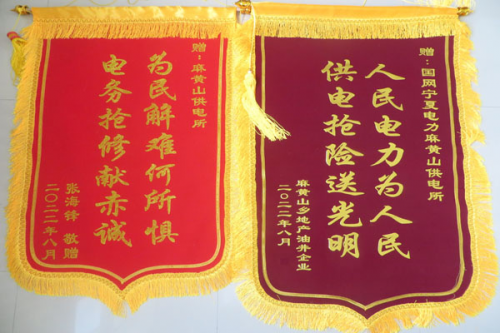 赠：麻黄山供电所
为民解难何所惧
电务抢修献赤诚
张海锋 敬赠
二〇二二年八月
赠：国网宁夏电力麻黄山供电所
人民电力为人民
供电抢险送光明
麻黄山乡地产油井企业
二〇二二年八月